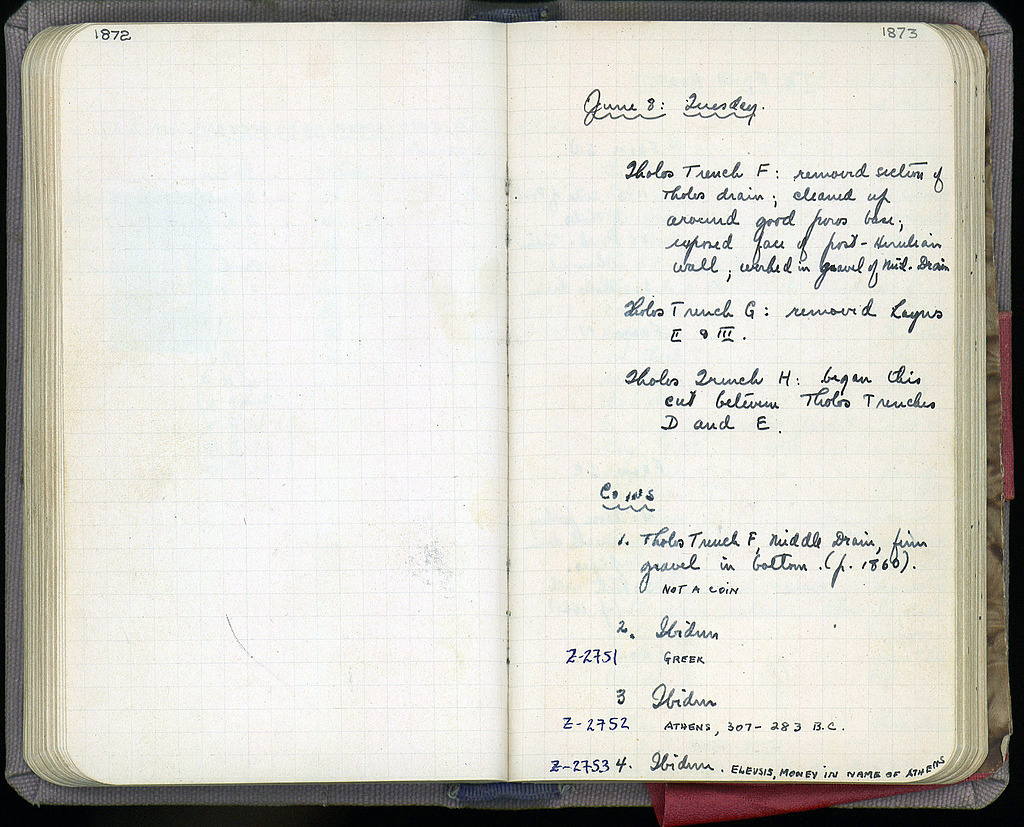 1872
1873
June 8: Tuesday.
Tholos Trench F: removed section of
Tholos drain; cleaned up
around good poros base;
exposed face of post-Herulian
wall; worked in gravel of Mid. Drain
Tholos Trench G: removed Layers
II & III.
Tholos Trench H: began this
cut between Tholos Trenches
D and E.
Coins
1. Tholos Trench F, Middle Drain, firm
gravel in bottom. (p. 1860).
NOT A COIN
2. Ibidem
Z-2751 GREEK
3 Ibidem
Z-2752 ATHENS, 307-283 B.C.
Z-2753 4. Ibidem. ELEUSIS, MONEY IN NAME OF ATHENS